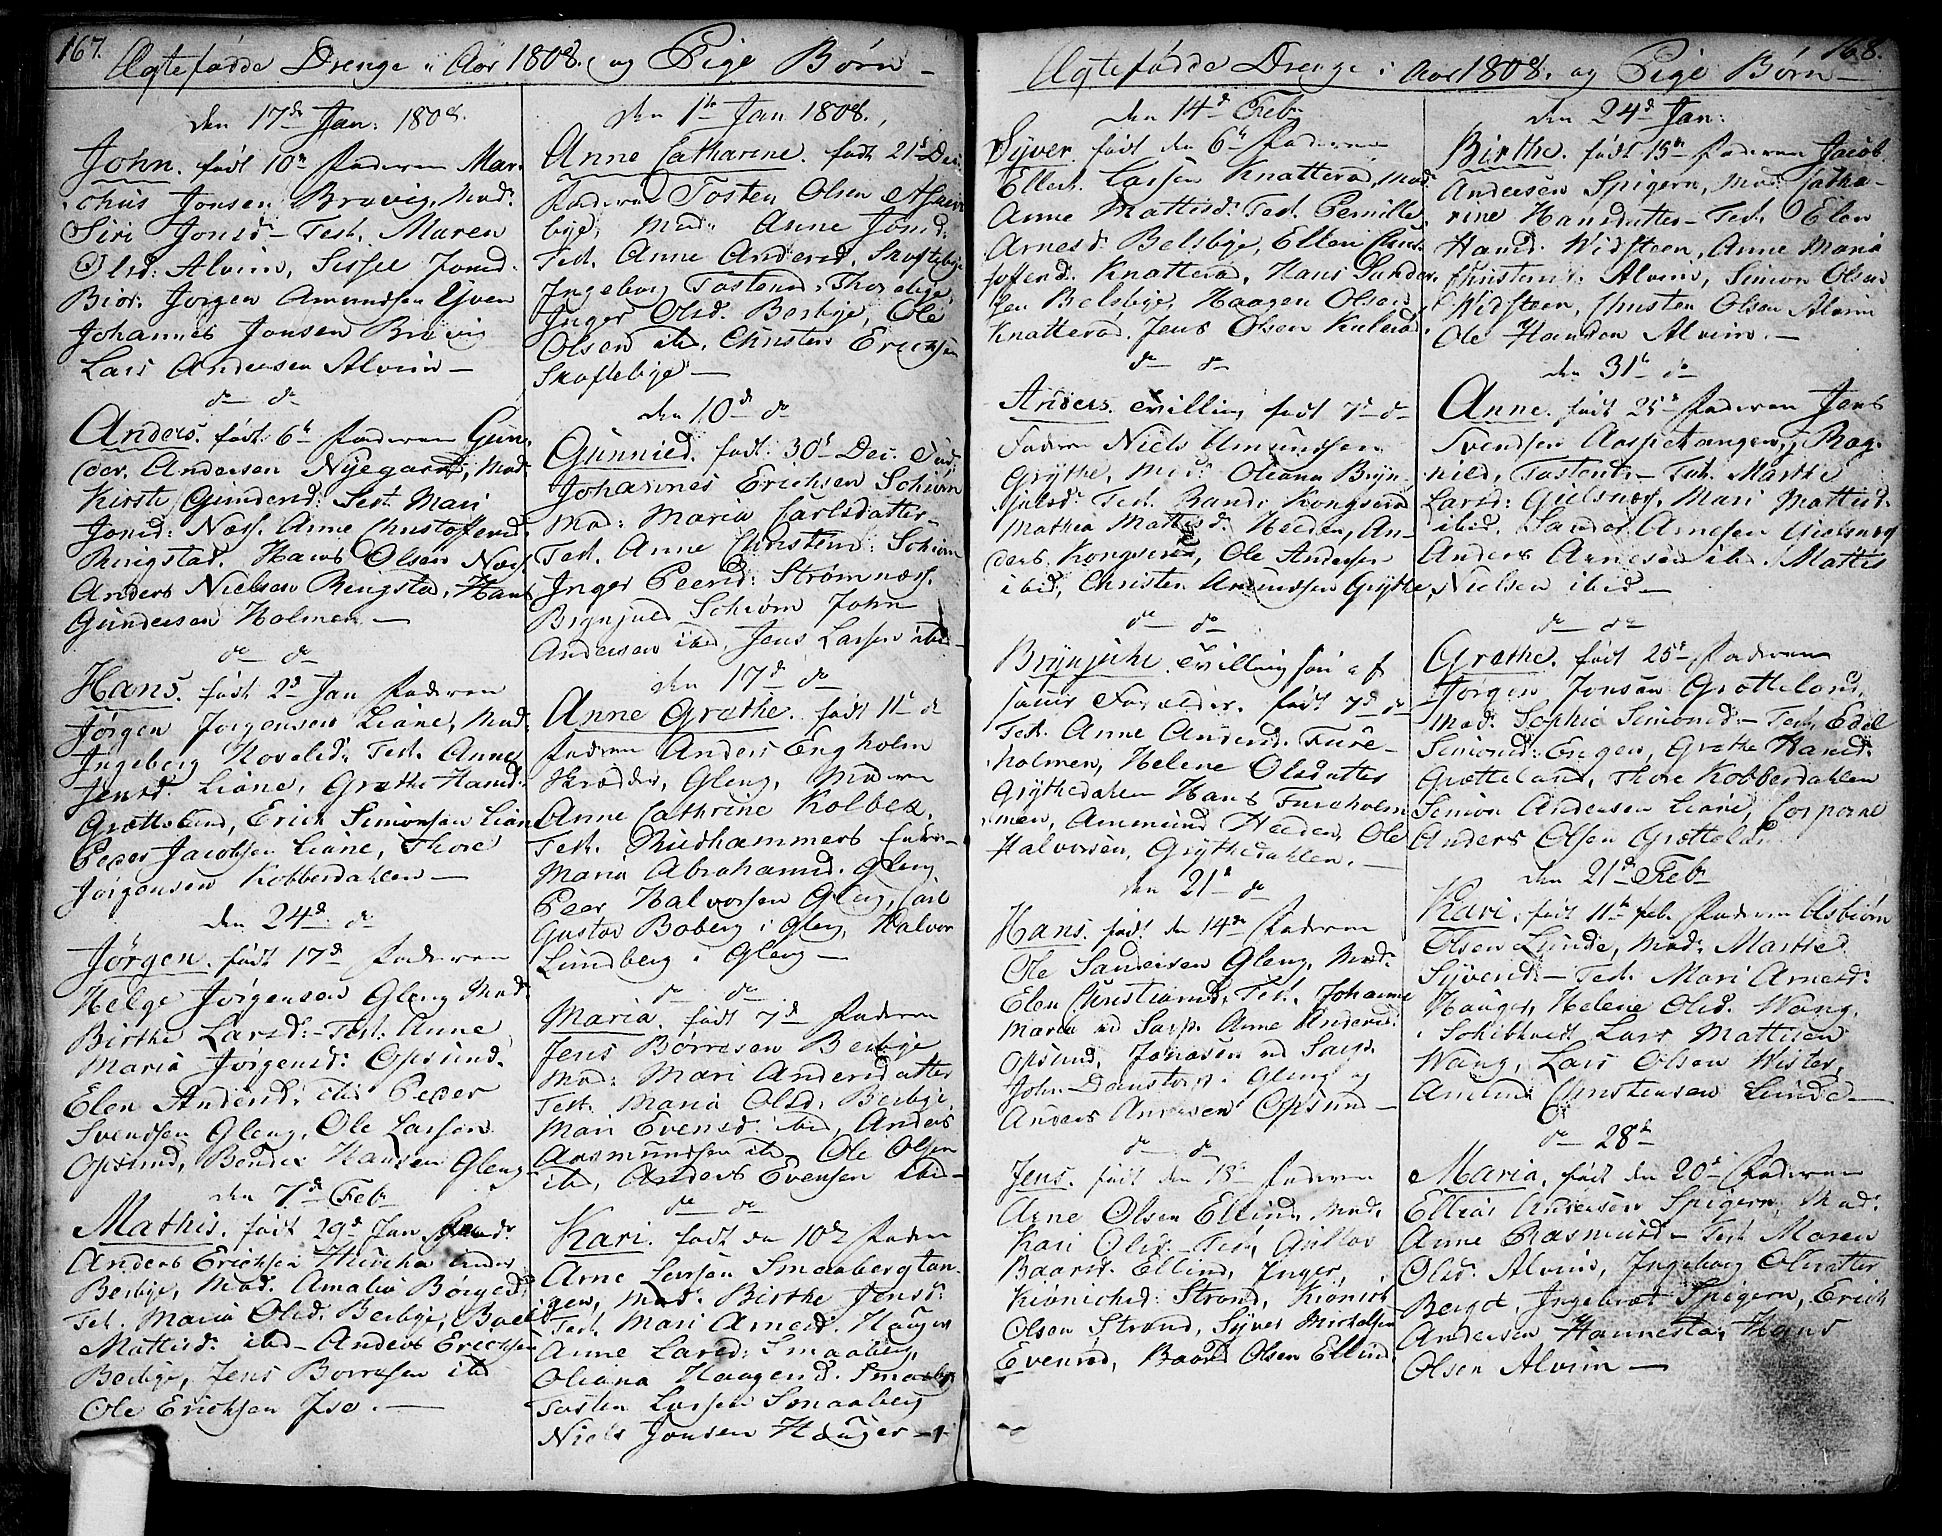 167.
Ægtefødde Drenge i Aar 1808. og Pige Børn
den 17de Jan: 1808.
John. født 10de Faderen Mar-
chus Jonsen Brevig, Mod:
Siri Jonsd: Test. Maren
Olsd: Alvim, Sissel Jonsd.
Biør. Jørgen Amundsen
Johannes Jonsen Brevig
Lars Andersen Alvim
do do
Anders. født 6te Faderen Gun-
der Andersen Nyegaard, Mod.
Kirste Gundersd: Test. Mari
Jonsd: Næss. Anne Christoffersd.
Ringstad. Hans Olsen Næss.
Anders Nielsen Ringstad, Hans
Gundersen Holmen
do do
Hans. født 2d Jan Faderen
Jørgen Jørgensen Liane, Mod:
Ingeborg Test. Anne
Jensd: Liane, Grethe Hansd:
Grøtteland, Erich Simonsen Liane
Peder Jacobsen Liane, Thore
Jørgensen Kobberdahlen
den 24d do
Jørgen. født 17de Faderen
Helge Jørgensen Gleng Mod:
Birthe Larsd: Test. Anne
Maria Jørgensd: Opsund.
Elen Andersd: ibid Peder
Svendsen Gleng, Ole Larsen
Opsund, Hansen Gleng
den 7de Feb
Mathis. født 29d Jan Fad:
Anders Erichsen under
Berbye, Mod. Amalia Børgesd:
Test. Maria Olsd. Berbye,
Mattisd: ibid Anders Erichsen
Berbye, Jens Borresen ibid
Ole Erichsen Ise.
den 1te Jan 1808.
Anne Catharine. født 21d Dec.
Faderen Tosten Olsen
bye, Mad: Anne Jonsd:
Test. Anne Andersd. Skoftebye
Ingeborg Tostensd. Thorebye,
Inger Olsd. Berbye, Ole
Olsen ibid, Christen Erichsen
Skoftebye
den 10d do
Gunnild. født 30d Dec. Fad:
Johannes Erichsen Schiørn
Mod: Maria Carlsdatter
Test. Anne Christensd: Schiørn
Inger Peersd: Strømnæss.
Brynjuld Schiørn John
Andersen ibid, Jens Larsen ibid
den 17d do
Anne Grethe. født 11te do
Faderen Anders Engholm
Skræder, Gleng, Moderen
Anne Cathrine Kolbek,
Test. Rushammers
Maria Abrahamsd. Gleng
Peer Halvorsen Gleng, Carl
Gustav Boberg i Gleng Halvor
Lundberg i Gleng
do do
Maria. født 7de Faderen
Jens Børresen Berbye
Mod: Mari Andersdatter
Test. Maria Olsd. Berbye,
Mari Evensd. ibid, Anders
Aasmundsen ibid Ole Olsen
ibid, Anders Evensen ibid
do do
Kari. født den 10de Faderen
Arne Larsen Smaabergtan-
gen, Mod. Birthe Jensd:
Test. Mari Arnesd. Hauger
Anne Larsd: Smaaberg,
Oleana Haagensd. Smaaberg
Tosten Larsen Smaaberg
Niels Jonsen Hauger
168.
Ægtefødde Drenge i Aar 1808. og Pige Børn
den 14d Feb
Syver født den 6te Faderen
Ellert Larsen Knatterød, Mod.
Anne Mattisd: Test. Pernille
Arnesd. Belsbye, Ellen Chris-
toffersd. Knatterød, Hans Gunder-
sen Belsbye, Haagen Olsen
Knatterød. Jens Olsen Kulerød.
do do
Anders. tvilling født 7de do
Faderen Niels Amundsen
Grythe, Mod: Oleana Bryn-
julsd: Test. Randi Kongsrød
Mathea Mattisd. Heeden, An-
ders Kongsrød, Ole Andersen
ibid, Christen Amundsen Grythe,
do do
Brynjuhl. Tvilling søn af
samme Forældre. født 7de do
Test. Anne Andersd. Fure-
holmen, Helene Olsdatter
Grythedalen Hans Fureholm
men, Ammund Heeden, Ole
Halvorsen, Grythedahlen.
den 21d do
Hans. født den 14de Faderen
Ole Sandersen Gleng, Mod:
Elen Christiansd. Test. Johanne
Maria ad Sarp. Anne Andersd.
Opsund, Jonasen ad Sarp.
John Danstorp. Gleng og
Anders Andersen Opsund
do do
Jens. født den 13de Faderen
Arne Olsen Ellind, Mod:
Kari Olsd. Test.
Baarsd. Ellind, Inger
Strønd,
Olsen Strønd, Syver Michelsen
Evenrød, Baard Olsen Ellind.
den 24d Jan:
Birthe. født 15de Faderen Jacob
Andersen Spigern, Mod: Catha-
rine Hansdatter Test. Elen
Hansd: Widsteen, Anne Maria
Christensd: Alvim, Simon Olsen
Widsteen, Christen Olsen Alvim
Ole Hansen Alvim.
den 31te do
Anne. født 25d Faderen Jens
Svendsen Aaspetangen, Rag-
nild Tostensd. Test. Marthe
Larsd: Gielsnæss, Mari Mattisd:
ibid. Sander Arnesen Gielsnæs
Anders Arnesen ibid. Mattis
Nielsen ibid
do do
Grethe. født 25d Faderen
Jørgen Jonsen Grøtteland.
Mod. Sophie Simonsd: Test. Edel
Simonsd: Engen, Grethe Hansd:
Grøtteland, Thore Kobberdahlen
Simon Andersen Liane, Corporal
Anders Olsen Grøtteland
den 21de Feb
Kari. født 11te feb. Faderen Asbiørn
Olsen Lunde, Mod. Marthe
Syversd. Test. Mari Arnesd:
Hauger, Helene Olsd. Wang,
i Schibtvet Lars Mattisen
Wang, Lars Olsen Wister,
Amund Christensen Lunde
do 28de
Maria. født den 20d Faderen
Ellias Andersen Spigern, Mod:
Anne Rasmusd: Test. Maren
Olsd. Alvim, Ingeborg Olsdatter
Berget, Ingebret Spigern, Erich
Andersen Hannestad, Hans
Olsen Alvim